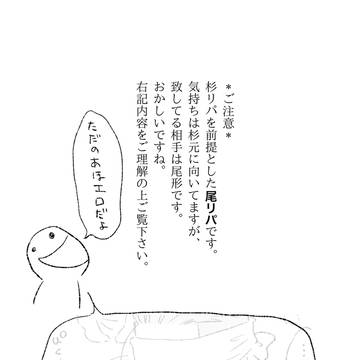 ＊ご注意＊
杉リパを前提とした尾リパです。
気持ちは杉元に向いてますが、
致してる相手は尾形です。
おかしいですね。
右記内容をご理解の上ご覧下さい。
ただの
あほエロだよ